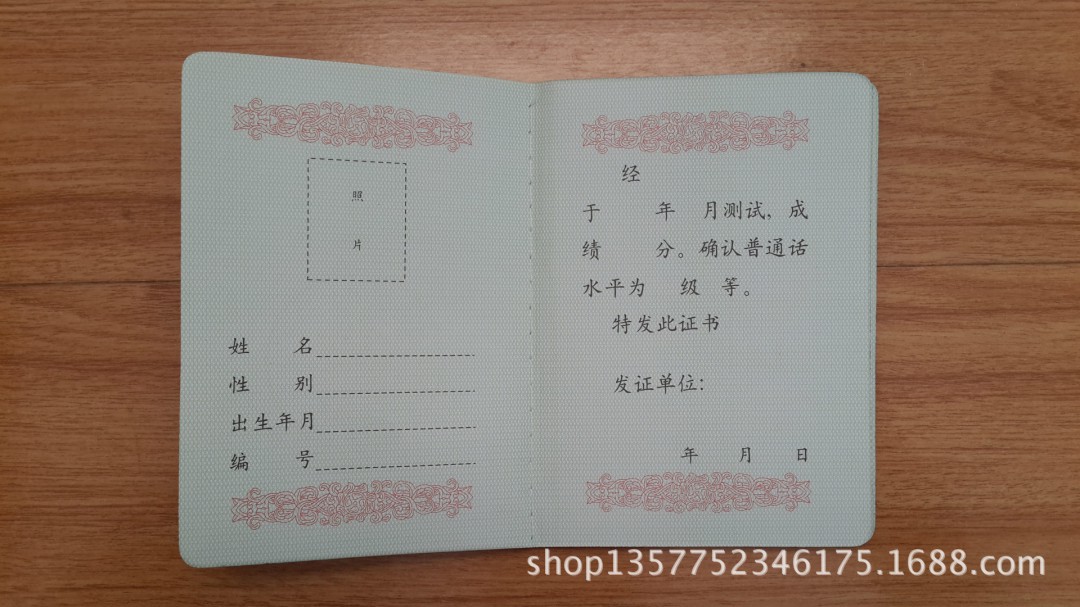 照
片
姓 名
性 别
出生年月
编 号
经
于 年 月测试，成
绩 分。确认普通话
水平为 级 等。
特发此证书
发证单位：
年 月 日
shop1357752346175.1688.com